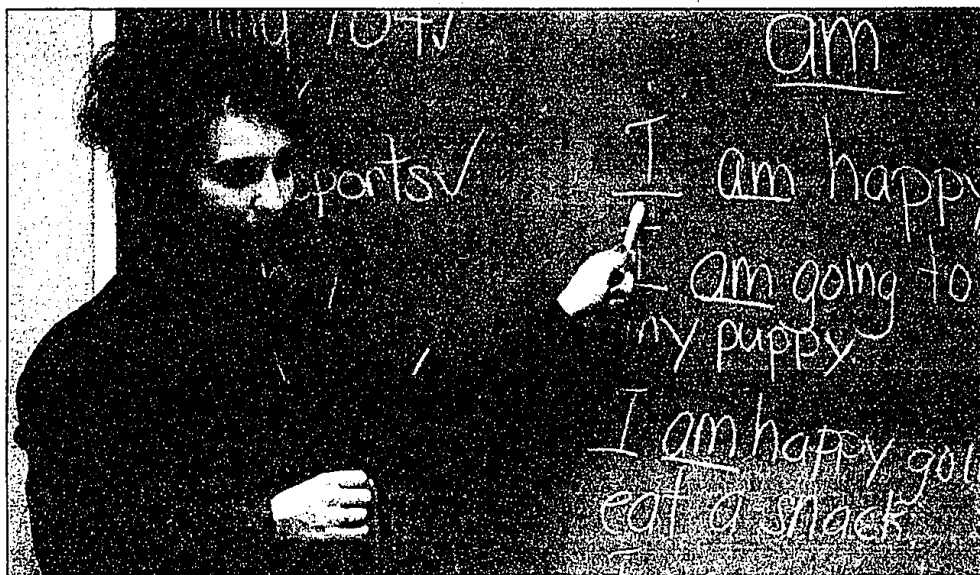 am
sports✓
I am happy
I am going to
my puppy.
I am happy
eat a snack